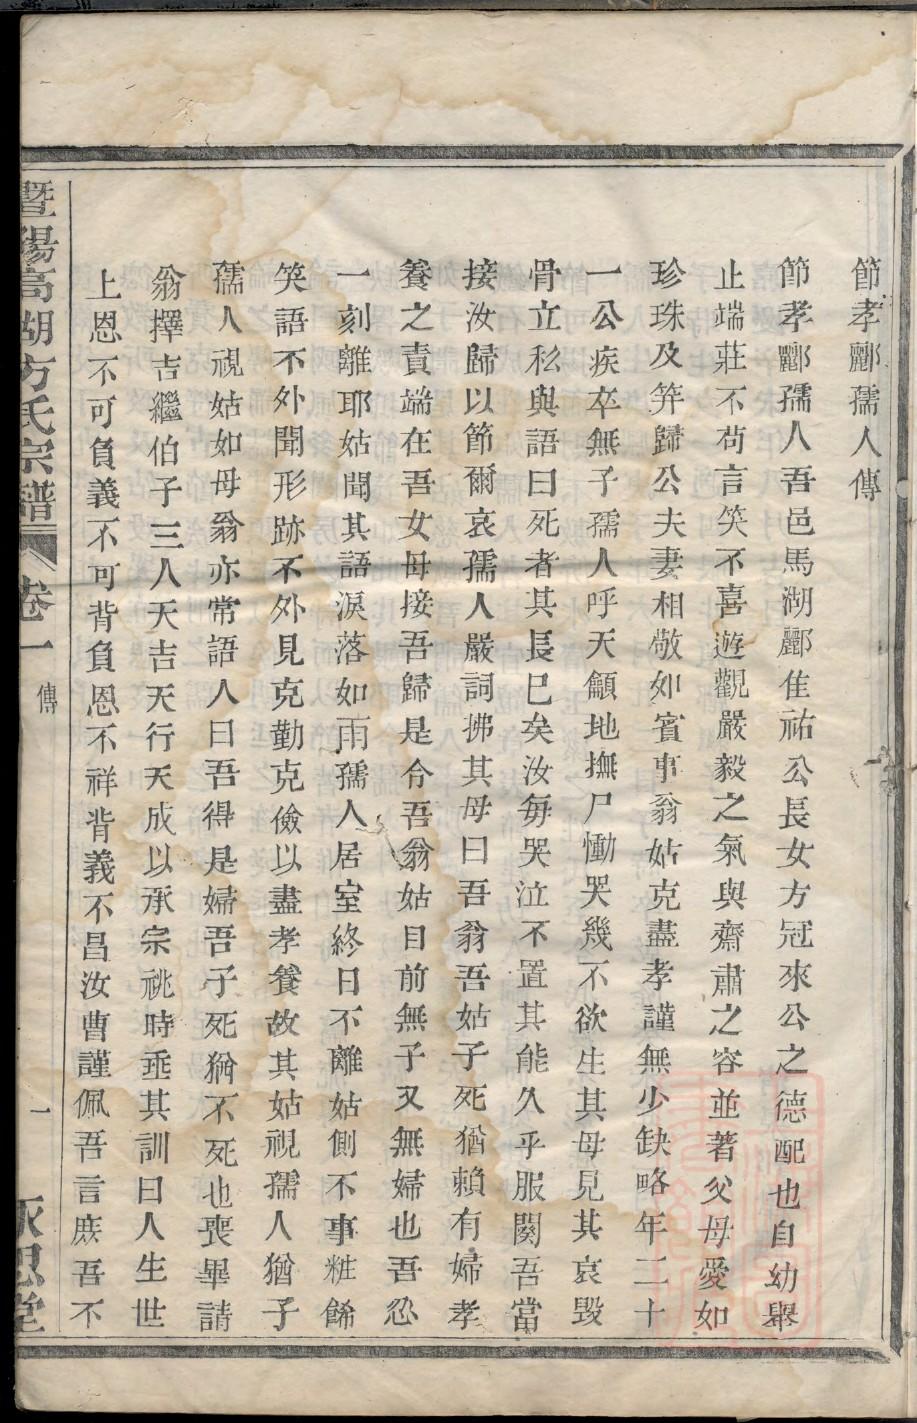 節孝酈孺人傳
節孝酈孺人吾邑馬湖酈隹祐公長女方冠來公之德配也自幼舉
止端莊不茍言笑不喜遊觀嚴毅之氣與齋肅之容並著父母愛如
珍珠及笄歸公夫妻相敬如賓事翁姑克盡孝謹無少缺略年二十
一公疾卒無子孺人呼天籲地撫尸慟哭幾不欲生其母見其哀毀
骨立私與語曰死者其長已矣汝毎哭泣不置其能久乎服闋吾當
接汝歸以節爾哀孺人嚴詞拂其母曰吾翁吾姑子死猶賴有婦孝
養之責端在吾女母接吾歸是令吾翁姑目前無子又無婦也吾忍
一刻離耶姑聞其語淚落如雨孺人居室終日不離姑側不事粧餙
笑語不外聞形跡不外見克勤克儉以盡孝養故其姑視孺人猶子
孺人視姑如母翁亦常語人曰吾得是婦吾子死猶不死也喪畢請
翁擇吉繼伯子三人天吉天行天成以承宗祧時垂其訓曰人生世
上恩不可負義不可背負恩不祥背義不昌汝曹謹佩吾言庶吾不
暨陽高湖方氏宗譜 卷一 傳 一 永思堂